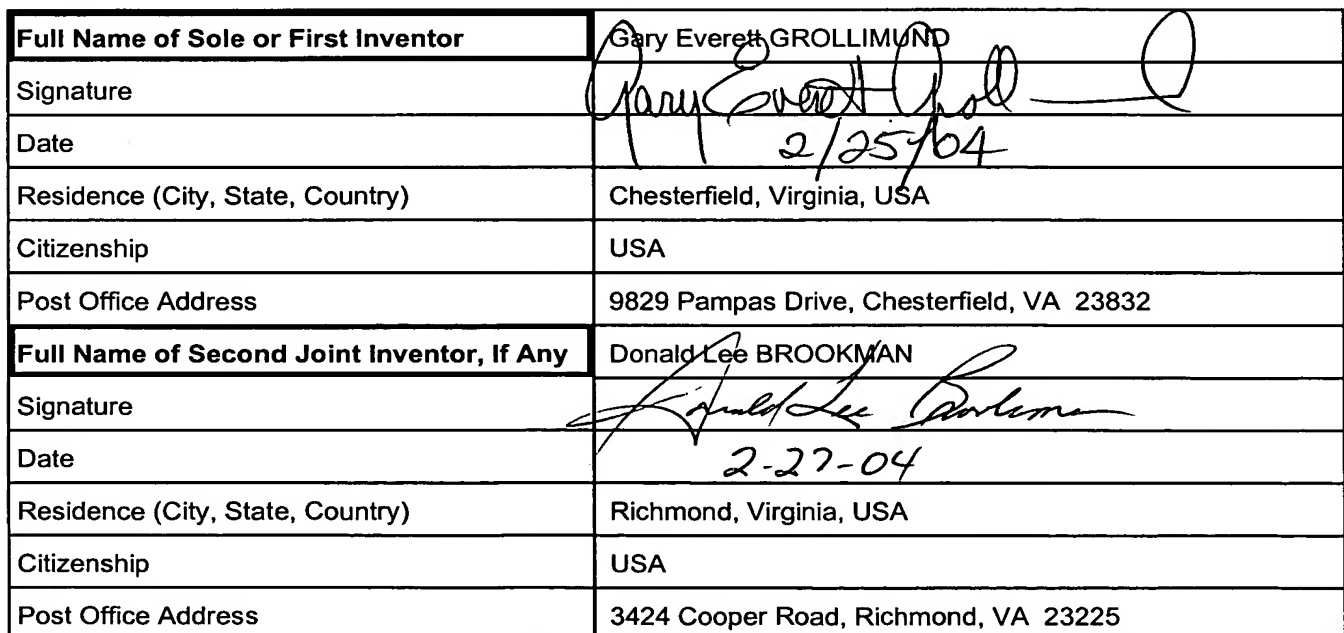 Full Name of Sole or First Inventor Gary Everett GROLLIMUND
Signature Gary Everett Groll
Date 2/25/04
Residence (City, State, Country) Chesterfield, Virginia, USA
Citizenship USA
Post Office Address 9829 Pampas Drive, Chesterfield, VA 23832
Full Name of Second Joint Inventor, If Any Donald Lee BROOKMAN
Signature Donald Lee Brookman
Date 2-27-04
Residence (City, State, Country) Richmond, Virginia, USA
Citizenship USA
Post Office Address 3424 Cooper Road, Richmond, VA 23225